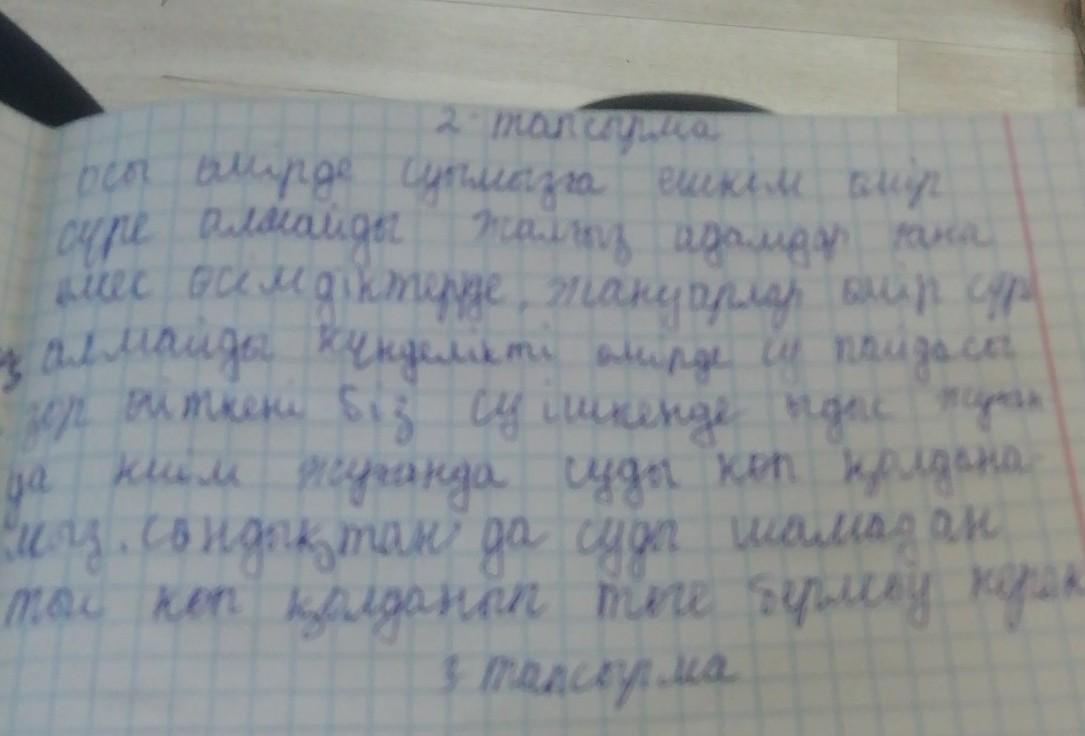 2 тапсырма
осы өмірде суымызға ешкім өмір
сүре алмайды жалғыз адамдар ғана
емес өсімдіктерде, жануарлар өмір сүре
алмайды күнделікті өмірде су пайдасы
зор өйткені біз су ішкенде ыдыс жуған
да киім жуғанда суды көп қолдана
мыз. сондықтан да суды шамадан
тыс көп қолданып төге бермеу керек
3 тапсырма